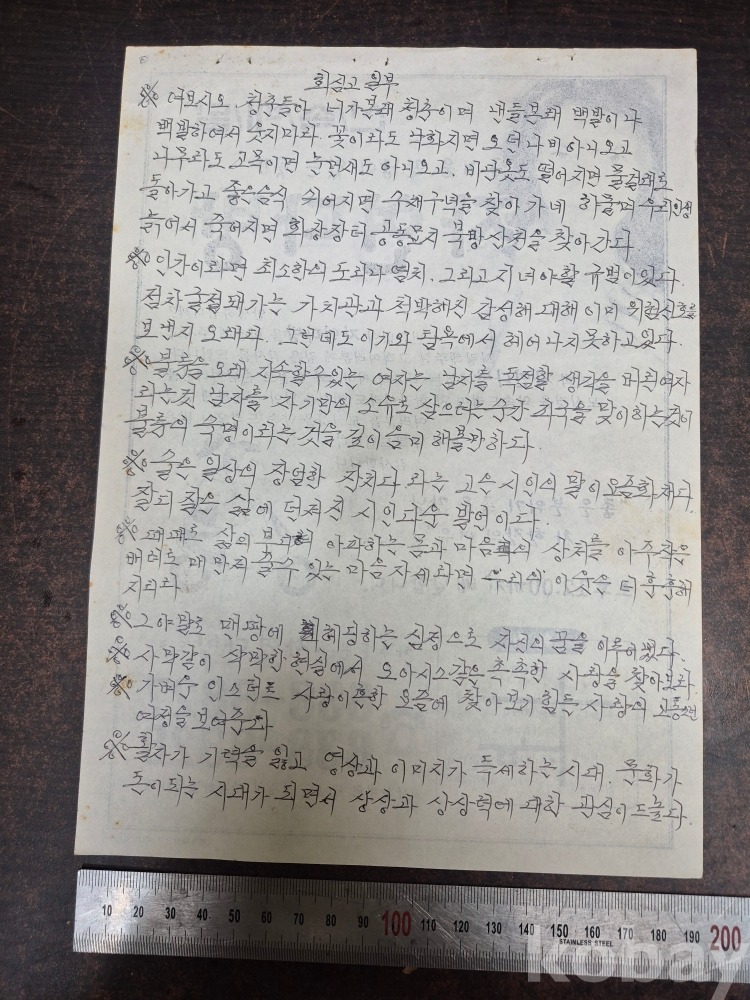 회심고 일부
※ 여보시오. 청춘들아 너가본래 청춘이며 낸들본래 백발이냐
백발하여서 웃지마라. 꽃이라도 낙화지면 오던나비아니오고
나무라도 고목이면 눈먼새도 아니오고. 비단옷도 떨어지면 물걸레로
돌아가고 좋은음식 쉬어지면 수채구녁을 찾아가네 하물며 우리인생
늙어서 죽어지면 화장장터 공동묘지 북방산천을 찾아간다
※ 인간이라면 최소한의 도리나 염치. 그리고 지녀야할 규범이있다.
점차 굴절돼가는 가치관과 척박해진 감성해 대해 이미 위험신호를
보낸지 오래다. 그런데도 이기와 탐욕에서 헤어나지못하고있다.
※ 불륜을 오래 지속할수있는 여자는 남자를 독점할 생각을 버린여자
라는것 남자를 자기만의 소유로 삼으려는순간 파국을 맞이하는것이
불륜의 숙명이라는 것을 깊이 음미 해볼만하다.
※ 술은 일상의 장엄한 잔치다 라는 고은 시인의 말이 요즘화제다.
질퍽 짙은 삶에 던져진 시인다운 발언이다.
※ 때때로 삶의 아파하는 몸과 마음의 상처를 아주작은
배려로 매만져 줄수 있는 마음자세라면 우리의 이웃은 더 훈훈해
지리라
※ 그야말로 맨땅에 헤딩하는 심정으로 자신의 꿈을 이루어냈다.
※ 사막같이 삭막한 현실에서 오아시스같은 촉촉한 사랑을 찾아보라.
※ 가벼운 인스턴트 사랑이흔한 요즘에 찾아보기힘든 사랑의
여정을 보여준다
※ 활자가 기력을 잃고 영상과 이미지가 득세하는 시대. 문화가
돈이되는 시대가 되면서 상상과 상상력에 대한 관심이 드높다.
10 20 30 40 50 60 70 80 90 100 110 120 130 140 150 160 170 180 190 200
STAINLESS STEEL
kobay